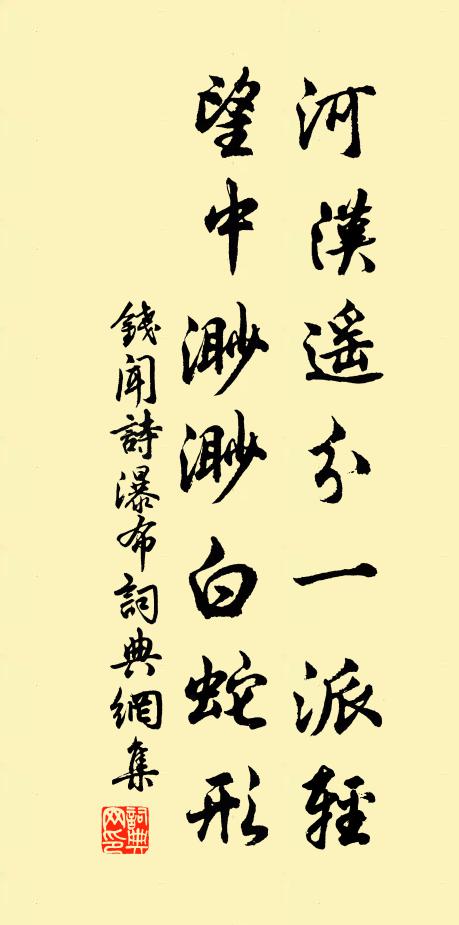 河漢遥分一派輕
望中渺渺白蛇形
錢聞詩瀑布詞典網集
詞典網印